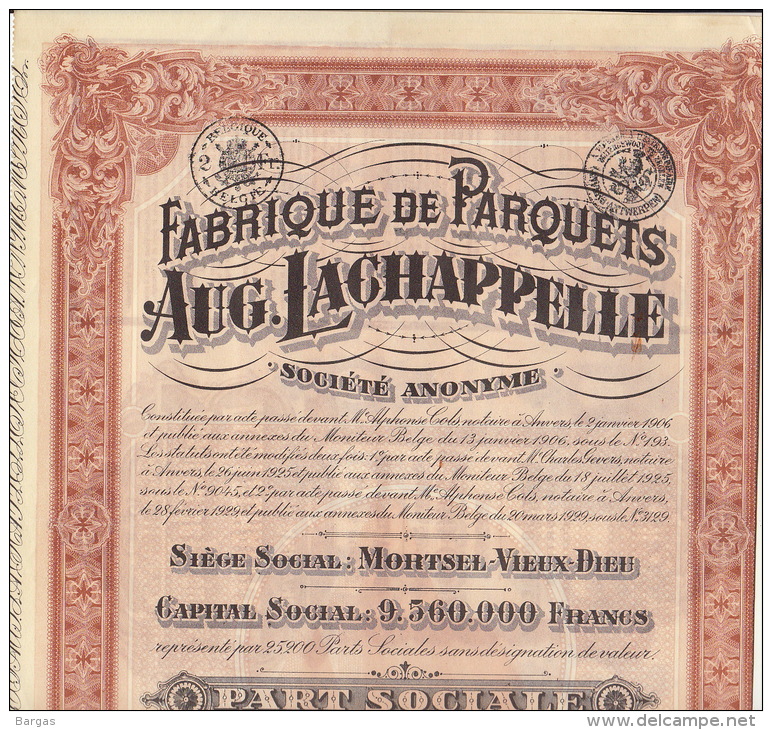 BELGIQUE
2 Fr.
BELGIË
FABRIQUE DE PARQUETS
AUG. LACHAPPELLE
SOCIÉTÉ ANONYME
Constituée par acte passé devant Mᵉ Alphonse Cols, notaire à Anvers, le 2 janvier 1906
et publié aux annexes du Moniteur Belge du 13 janvier 1906, sous le Nº 193.
Les statuts ont été modifiés deux fois: 1º par acte passé devant Mᵉ Charles Gevers, notaire
à Anvers, le 26 juin 1925 et publié aux annexes du Moniteur Belge du 18 juillet 1925,
sous le Nº 9045, et 2º par acte passé devant Mᵉ Alphonse Cols, notaire à Anvers,
le 28 février 1929 et publié aux annexes du Moniteur Belge du 20 mars 1929, sous le Nº 3129.
SIÈGE SOCIAL: MORTSEL-VIEUX-DIEU
CAPITAL SOCIAL: 9.560.000 FRANCS
représenté par 25200 Parts Sociales sans désignation de valeur.
PART SOCIALE
Bargas
www.delcampe.net